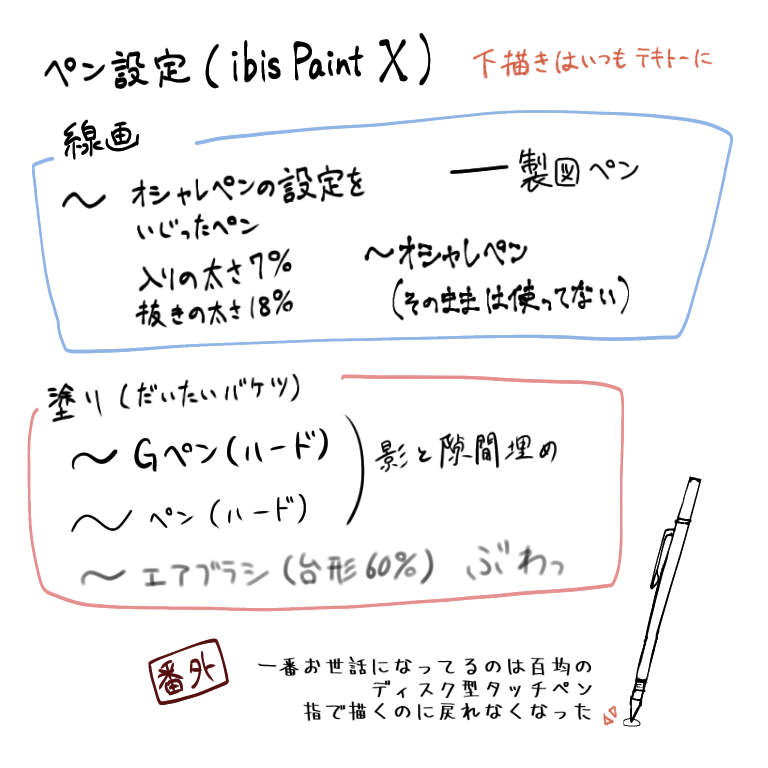 ペン設定(ibis Paint X)
下描きはいつもテキトーに
線画
〜 オシャレペンの設定を
いじったペン
入りの太さ7%
抜きの太さ18%
― 製図ペン
〜オシャレペン
(そのままは使ってない)
塗り(だいたいバケツ)
〜 Gペン(ハード)
〜 ペン(ハード)
影と隙間埋め
〜 エアブラシ(台形60%) ぶわっ
番外
一番お世話になってるのは百均の
ディスク型タッチペン
指で描くのに戻れなくなった